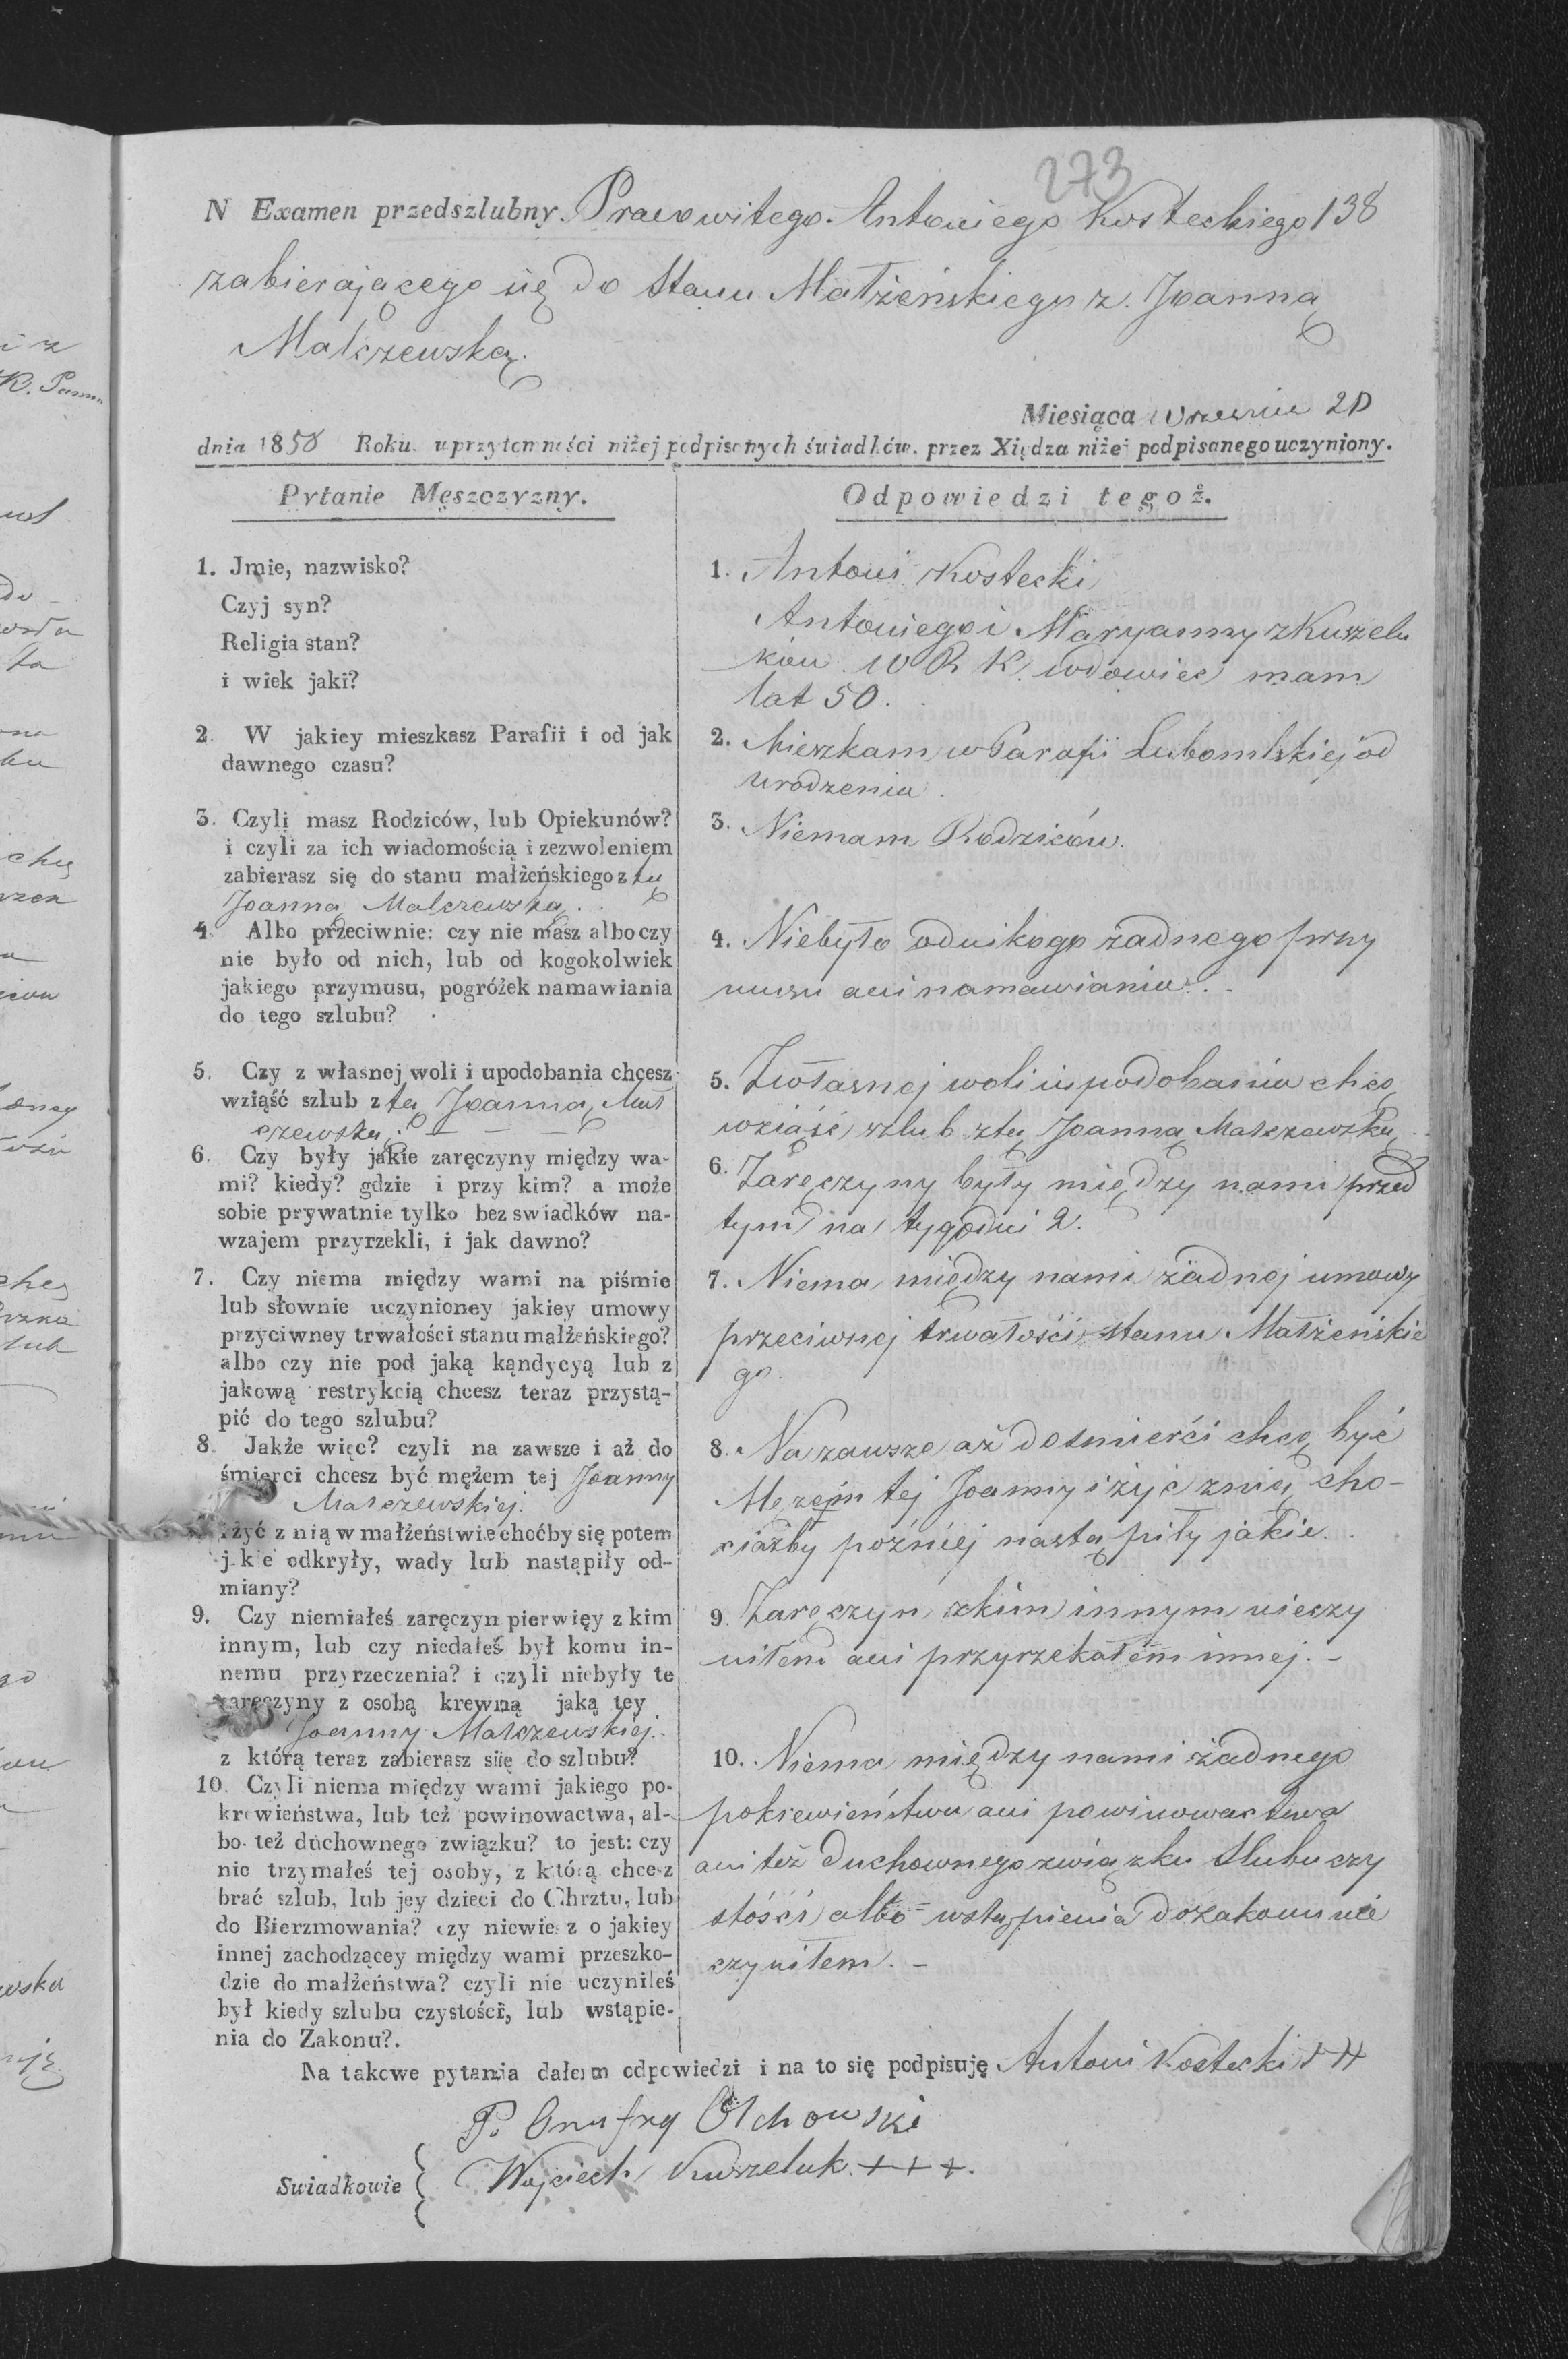 273
N Examen przedszlubny. Prawowitego Antoniego Kosteckiego 138
zabierającego się do Stanu Małżeńskiego z Joanną
Malczewską.
Miesiąca Wrzesnia 20
dnia 1858 Roku. w przytomności niżej podpisanych świadków. przez Xiędza niżej podpisanego uczyniony.
Pytanie Męszczyzny.
1. Jmie, nazwisko?
Czyj syn?
Religia stan?
i wiek jaki?
2. W jakiey mieszkasz Parafii i od jak
dawnego czasu?
3. Czyli masz Rodziców, lub Opiekunów?
i czyli za ich wiadomością i zezwoleniem
zabierasz się do stanu małżeńskiego z tą
Joanną Malczewską.
4. Albo przeciwnie: czy nie masz albo czy
nie było od nich, lub od kogokolwiek
jakiego przymusu, pogróżek namawiania
do tego szlubu?
5. Czy z własnej woli i upodobania chcesz
wziąść szlub z tą Joanną Mal
czewską. — — —
6. Czy były jakie zaręczyny między wa-
mi? kiedy? gdzie i przy kim? a może
sobie prywatnie tylko bez swiadków na-
wzajem przyrzekli, i jak dawno?
7. Czy niema między wami na piśmie
lub słownie uczynioney jakiey umowy
przyciwney trwałości stanu małżeńskiego?
albo czy nie pod jaką kąndycyą lub z
jakową restrykcią chcesz teraz przystą-
pić do tego szlubu?
8. Jakże więc? czyli na zawsze i aż do
śmierci chcesz być mężem tej Joanny
Malczewskiej.
i żyć z nią w małżeństwie choćby się potem
j.kie odkryły, wady lub nastąpiły od-
miany?
9. Czy niemiałeś zaręczyn pierwięy z kim
innym, lub czy niedałeś był komu in-
nemu przyrzeczenia? i czyli niebyły te
zaręczyny z osobą krewną jaką tey
Joanny Malczewskiej.
z którą teraz zabierasz siię do szlubu?
10. Czyli niema między wami jakiego po-
krewieństwa, lub też powinowactwa, al-
bo też duchownego związku? to jest: czy
nie trzymałeś tej osoby, z którą chcesz
brać szlub, lub jey dzieci do Chrztu, lub
do Bierzmowania? czy niewiesz o jakiey
innej zachodzącey między wami przeszko-
dzie do małżeństwa? czyli nie uczyniłeś
był kiedy szlubu czystości, lub wstąpie-
nia do Zakonu?.
Odpowiedzi tegoż.
1. Antoni Kostecki
Antoniego i Maryanny z Kuszelu
ków W R K. wdowiec mam
lat 50.
2. Mieszkam w Parafii Lubomlskiej od
urodzenia.
3. Niemam Rodziców.
4. Niebyło od nikogo żadnego przy
musu ani namawiania. -
5. Zwłasnej woli i upodobania chcę
wziąść szlub z tą Joanną Malczewską
6. Zaręczyny były między nami przed
tym na tygodni 2.
7. Niema między nami żadnej umowy
przeciwnej trwałości stanu Małżeńskie
go.
8. Na zawsze aż do śmierći chcę być
Mężem tej Joanny i żyć z nią cho-
ciażby poźniej nastąpiły jakie.
9. Zaręczyn z kim innym nieczy
niłem ani przyrzekałem innej. -
10. Niema między nami żadnego
pokrewieństwa ani powinowactwa
ani też duchownego związku Slubu czy
stości albo wstąpienia do zakonu nie
czyniłem. -
Na takowe pytania dałem odpowiedzi i na to się podpisuję Antoni Kostecki
P. Onufry Olchowski
Swiadkowie { Wojciech Kuszeluk +++.